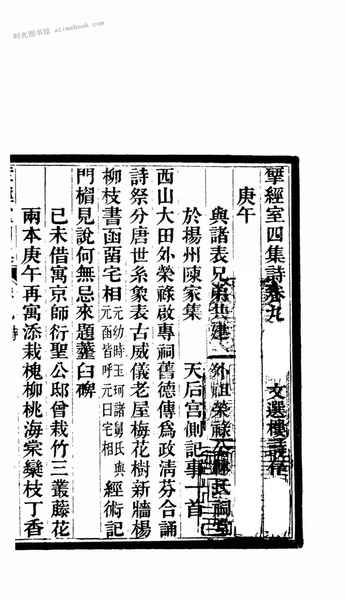 时光图书馆 atimebook.com
揅經室四集詩卷九
文選樓詩存
庚午
與諸表兄弟共建外祖榮祿公林氏祠堂
於楊州陳家集 天后宮側記事一首
西山大田外榮祿啟專祠舊德傳爲政清芬合誦
詩祭分唐世系象表古威儀老屋梅花樹新牆楊
柳枝書函留宅相元幼時玉珂諸舅氏與元函皆呼元曰宅相經術記
門楣見說何無忌來題虀臼碑
己未借寓京師衍聖公邸曾栽竹三叢藤花
兩本庚午再寓添栽槐柳桃海棠欒枝丁香